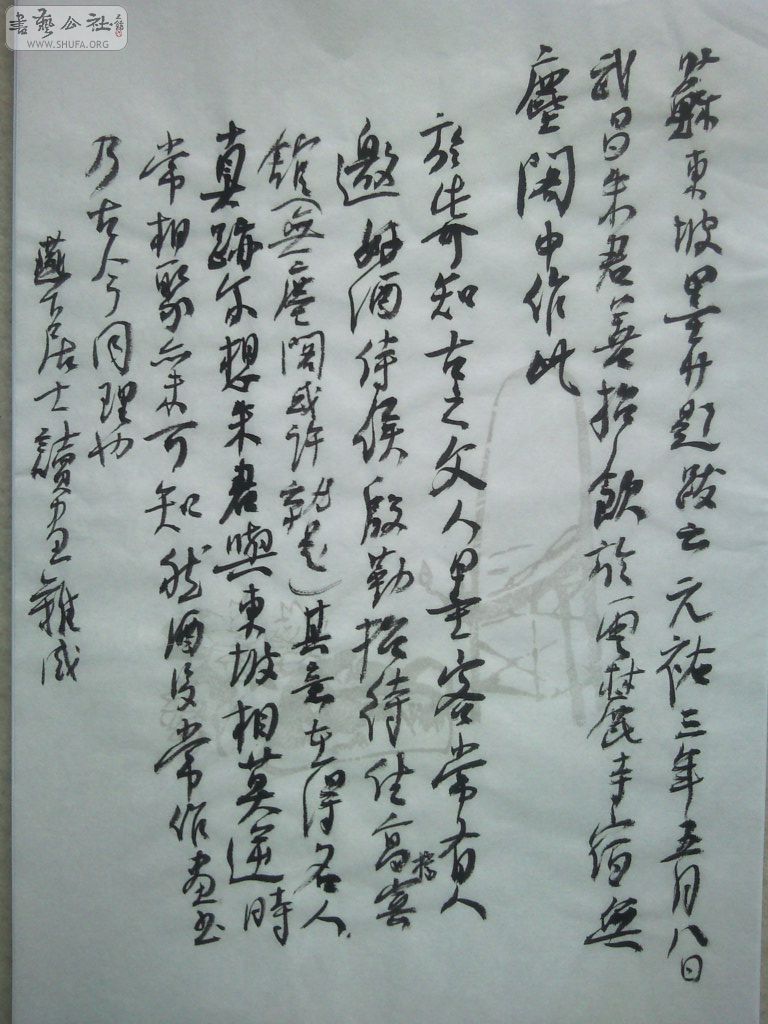 書藝公社
WWW.SHUFA.ORG
蘇東坡墨竹題跋云元祐三年五月八日
武昌朱君善招飲於雲麓寺宿無
塵閣中作此
於此可知古之文人墨客常有人
邀好酒待候殷勤招待住高檔賓
館（無塵閣或許就是）其意在得名人
真跡尔想朱君與東坡相莫逆時
常相聚亦未可知然酒後常作畫
乃古今同理也
居士讀畫雜感